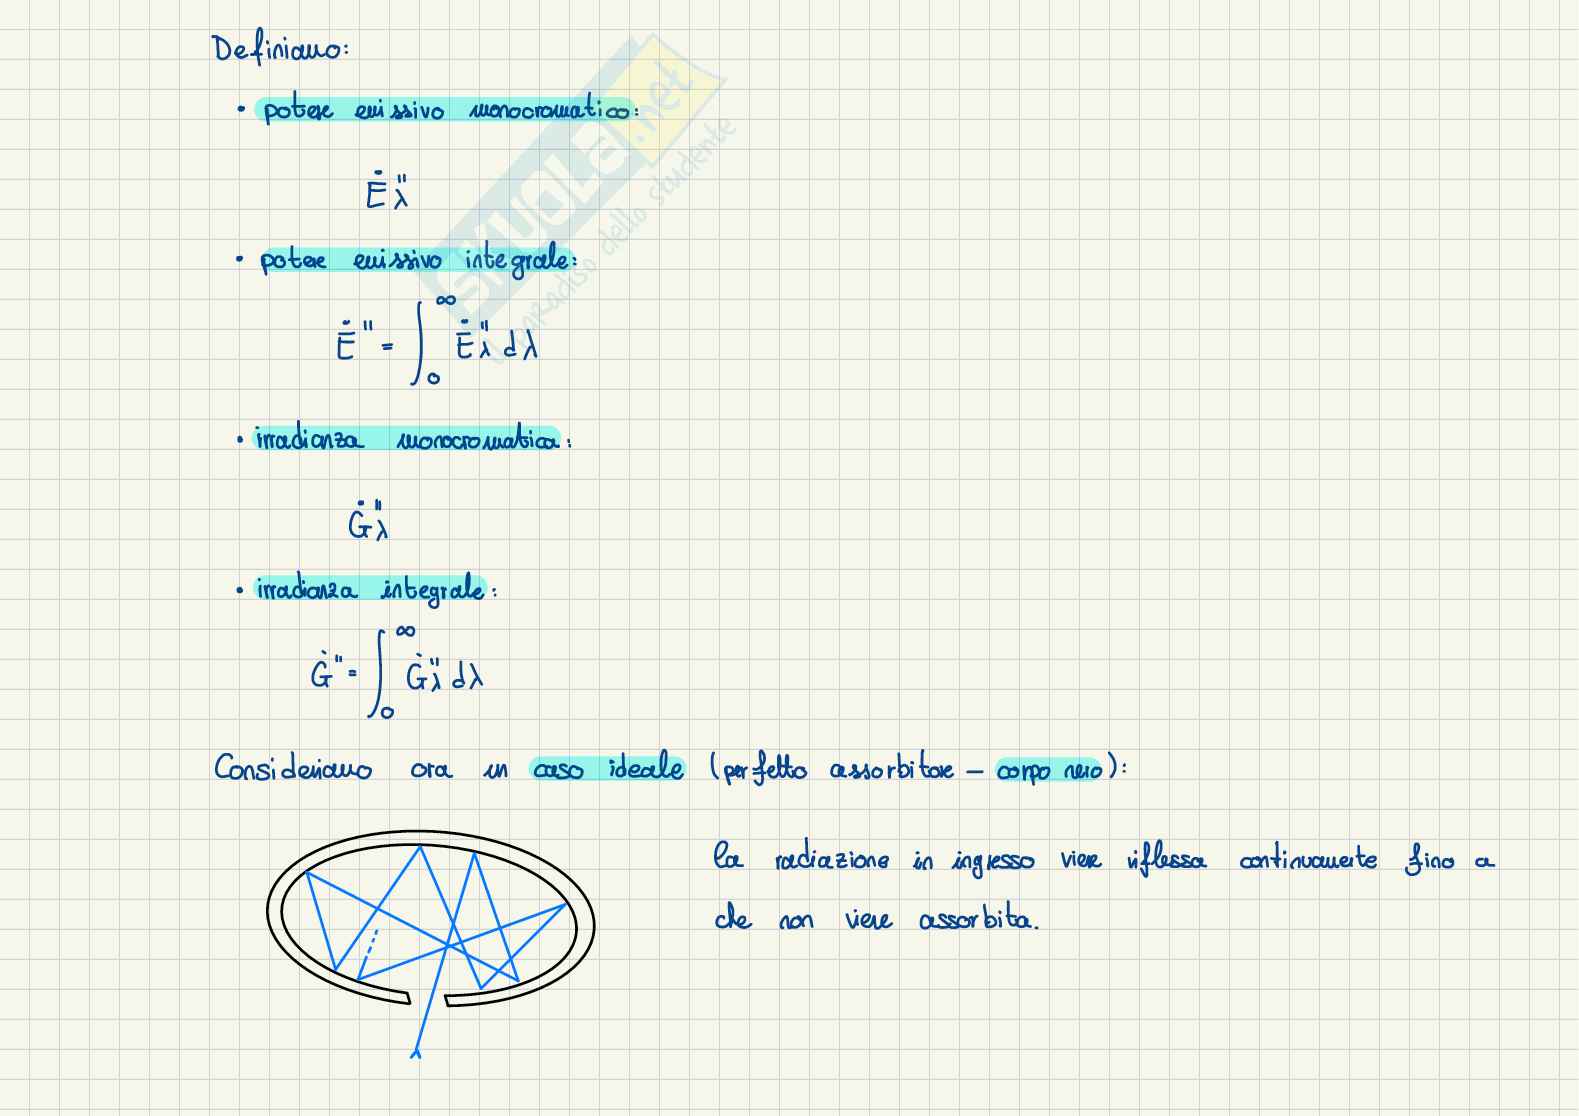 Definiamo:
• potere emissivo monocromatico:
Ė"λ
• potere emissivo integrale:
Ė" = ∫₀^∞ Ė"λ dλ
• irradianza monocromatica:
Ġ"λ
• irradianza integrale:
Ġ" = ∫₀^∞ Ġ"λ dλ
Consideriamo ora un caso ideale (perfetto assorbitore – corpo nero):
la radiazione in ingresso viene riflessa continuamente fino a
che non viene assorbita.
SKUOLA.net
il paradiso dello studente